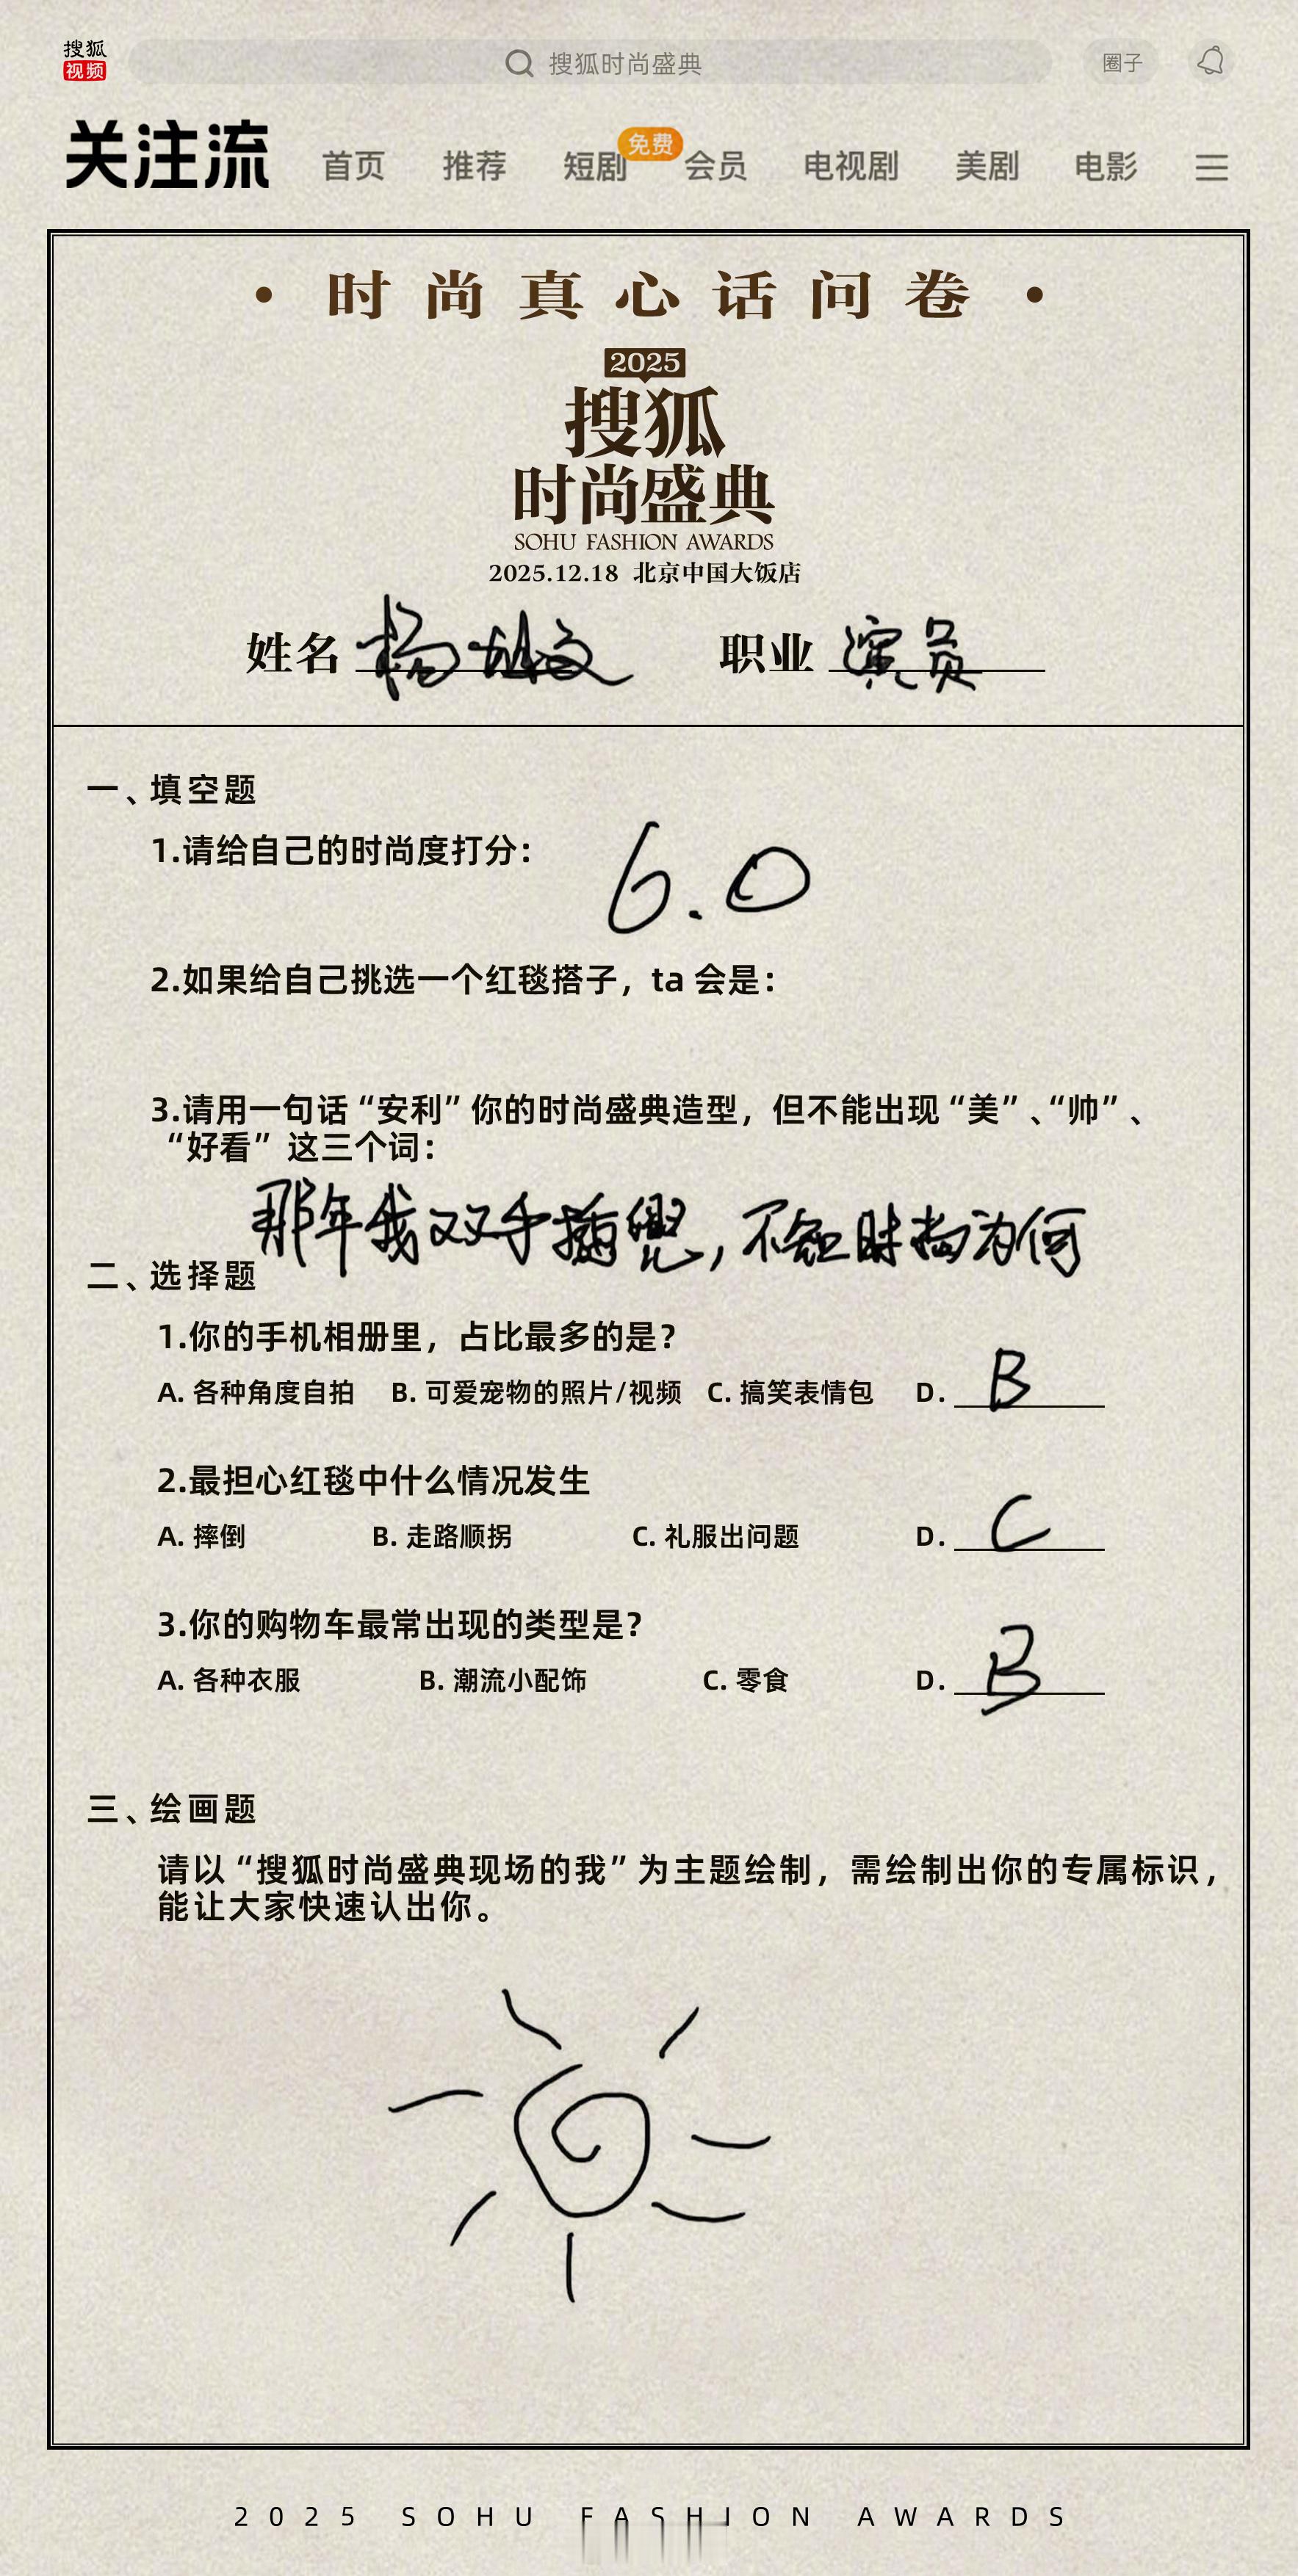 搜狐
视频
搜狐时尚盛典
圈子
关注流 首页 推荐 短剧 免费 会员 电视剧 美剧 电影
• 时尚真心话问卷 •
2025
搜狐
时尚盛典
SOHU FASHION AWARDS
2025.12.18 北京中国大饭店
姓名 杨 职业 演员
一、填空题
1.请给自己的时尚度打分： 6.0
2.如果给自己挑选一个红毯搭子，ta 会是：
3.请用一句话“安利”你的时尚盛典造型，但不能出现“美”、“帅”、
“好看”这三个词：
那年我双手插兜，不知时尚为何
二、选择题
1.你的手机相册里，占比最多的是？
A. 各种角度自拍 B. 可爱宠物的照片/视频 C. 搞笑表情包 D. B
2.最担心红毯中什么情况发生
A. 摔倒 B. 走路顺拐 C. 礼服出问题 D. C
3.你的购物车最常出现的类型是？
A. 各种衣服 B. 潮流小配饰 C. 零食 D. B
三、绘画题
请以“搜狐时尚盛典现场的我”为主题绘制，需绘制出你的专属标识，
能让大家快速认出你。
2025 SOHU FASHION AWARDS